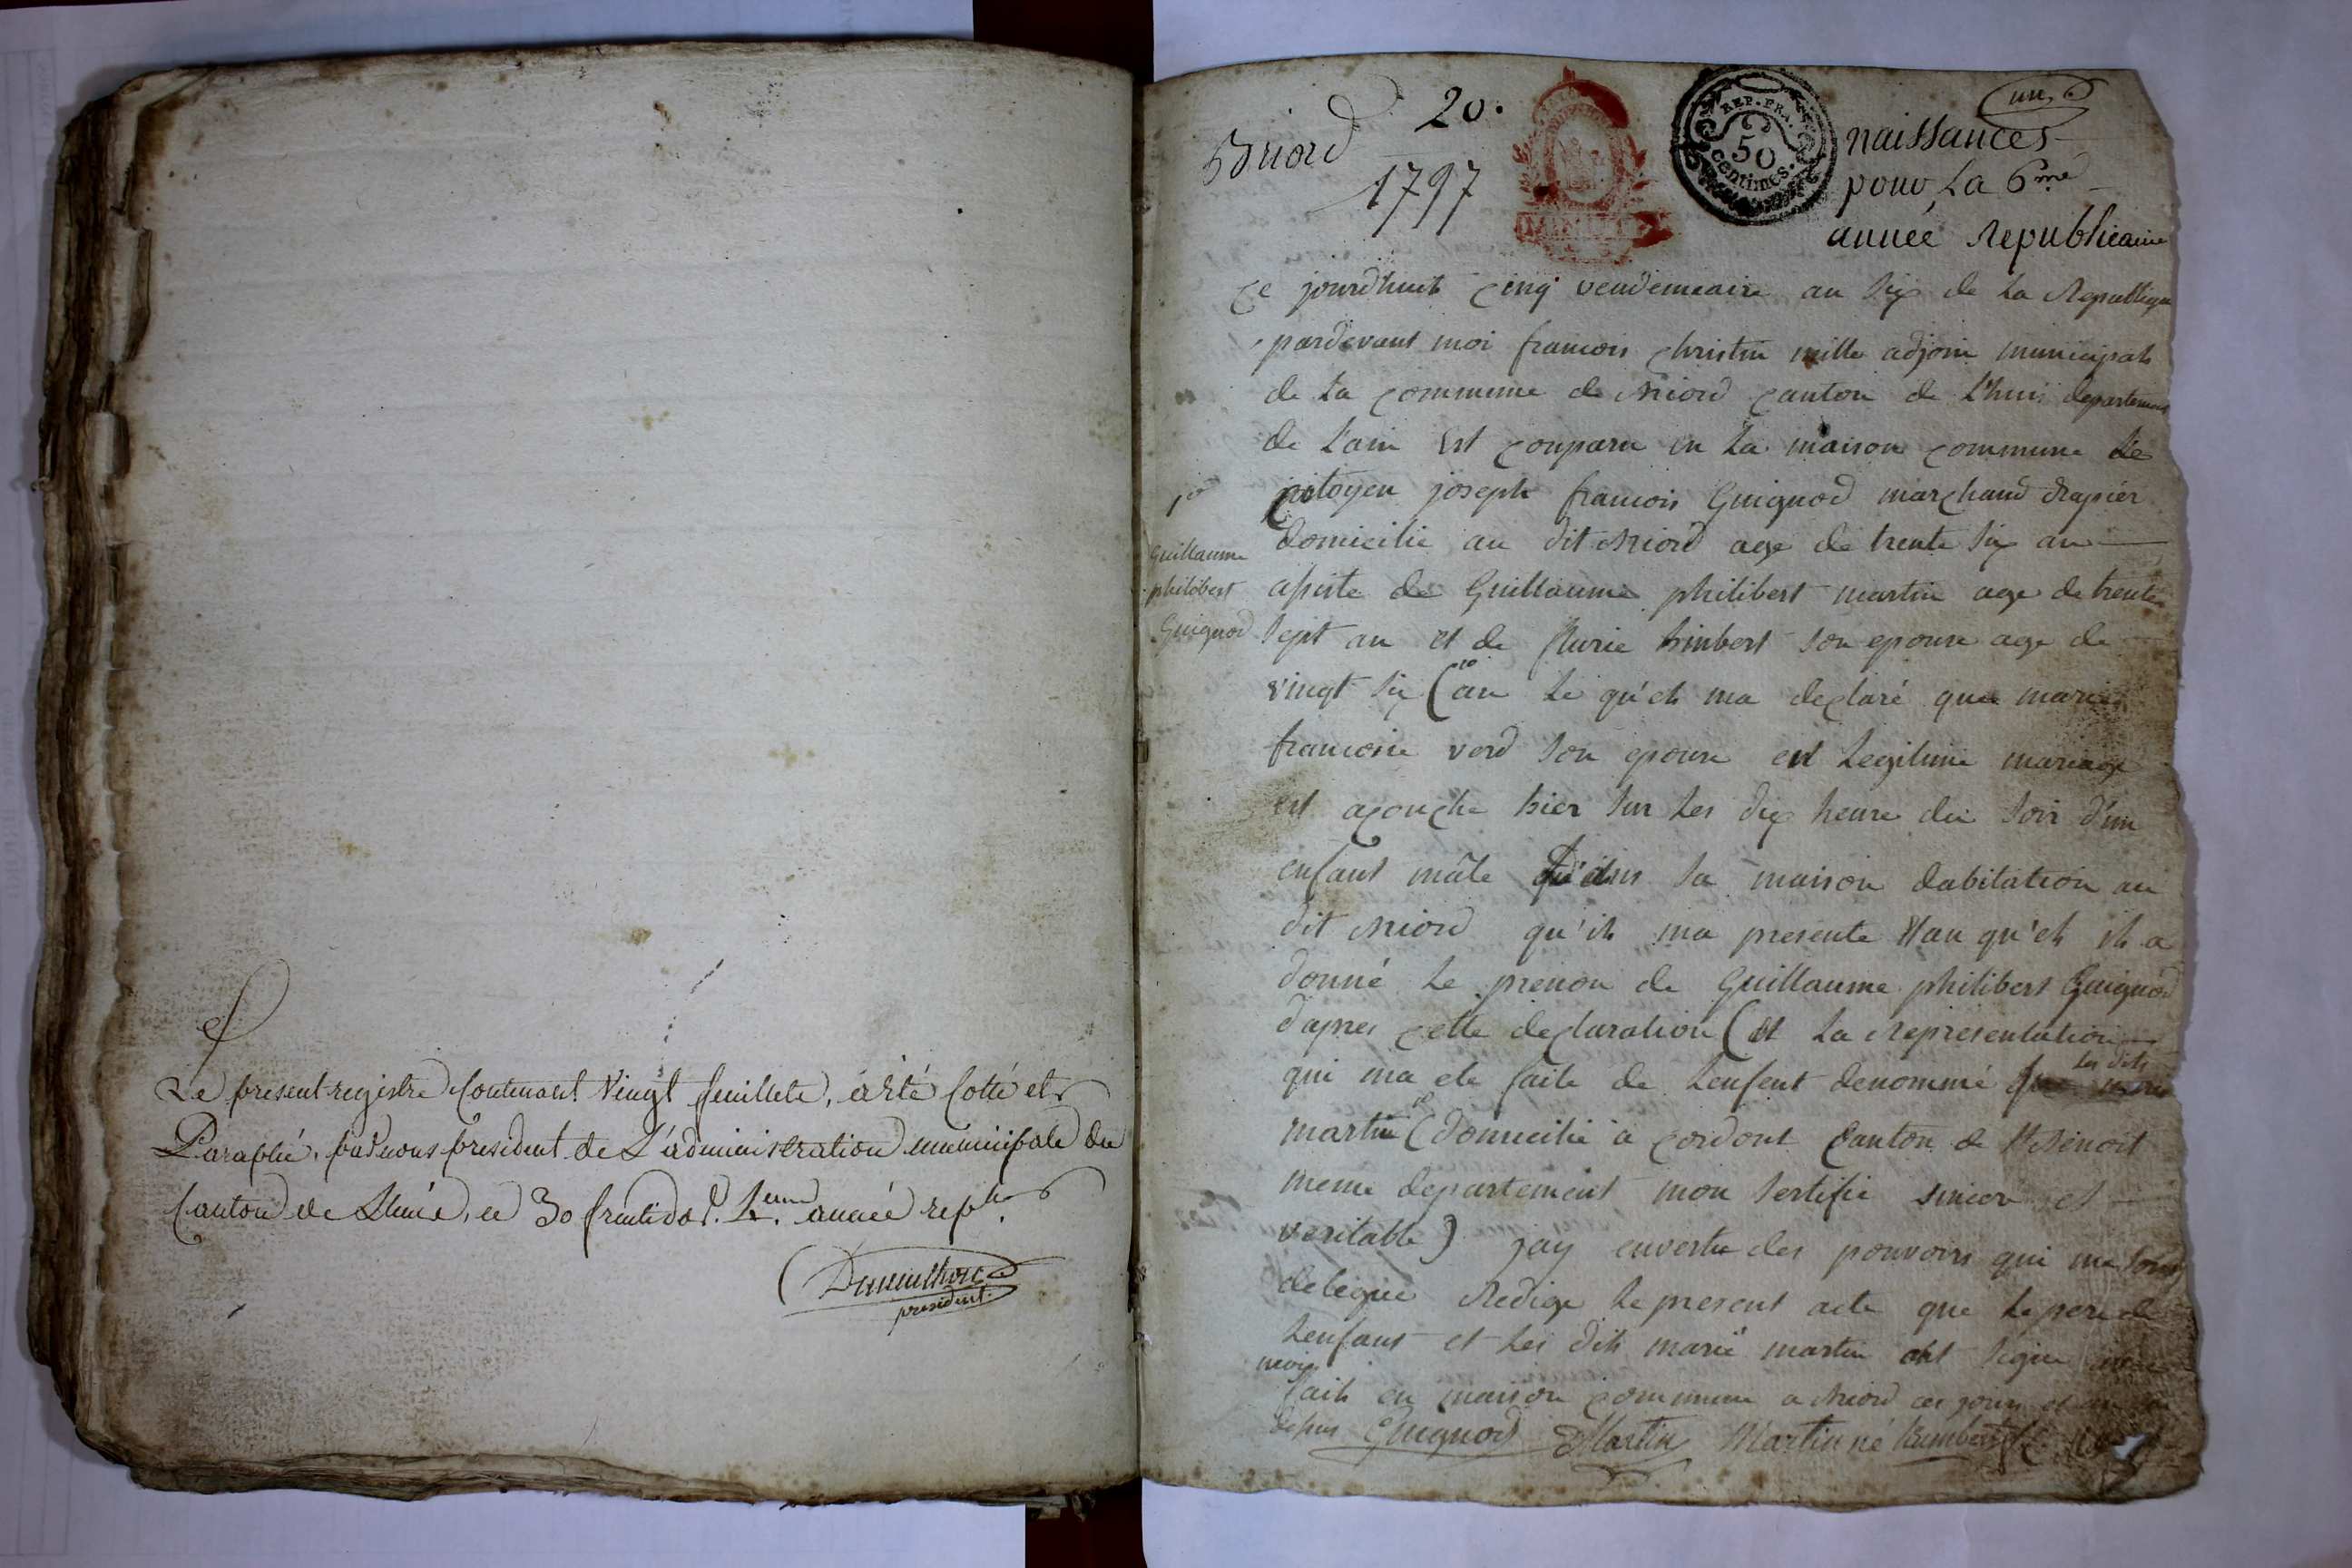 Le present registre Contenant Vingt feuillets, a été Cotté et
Paraphé, par nous president de L'administration municipale du
Canton de Lhuis, ce 30 fructidor. 5.eme année repb.
president.
Briord
20.
1797
REP. FRA.
50
centimes.
un
naissances
pour La 6me
année Republicaine
Ce jourdhuit cinq vendemeaire an six de La Republique
pardevant moi francois christin mille adjoin municipals
de La commune de Briord canton de L'huis departement
de L'ain est conparu en La maison commune Le
citoyen joseph francois Guignod marchand drapier
1er
domicilie au dit Briord age de trente six an
Guillaume
philibert
Guignod
assiste de Guillaume philibert martin age de trente
sept an et de Humbert son epouse age de
vingt six an Le qu'els ma declaré que marie
francoise vord son epouse en Legitime mariage
est acouche hier sur Les dix heure du soir d'un
enfant mâle dans sa maison dabitation au
dit Briord qu'ils ma presente au qu'els ils a
donné Le prenon de Guillaume philibert Guignod
dapres cette declaration (et La Representation
qui ma ete faite de Lenfent denommé
Les dits
martin (domicilié a cordont Canton de St Benoit
meme departement mon sertifié sincer et
veritable) jay envertu des pouvoirs qui me sont
delegue Redige Le present acte que Le pere de
Lenfant et Les dits marié martin ont signe avec
moi
faits en maison commune a Briord ces jours et an
depus Guignod Martin Martin né humbert